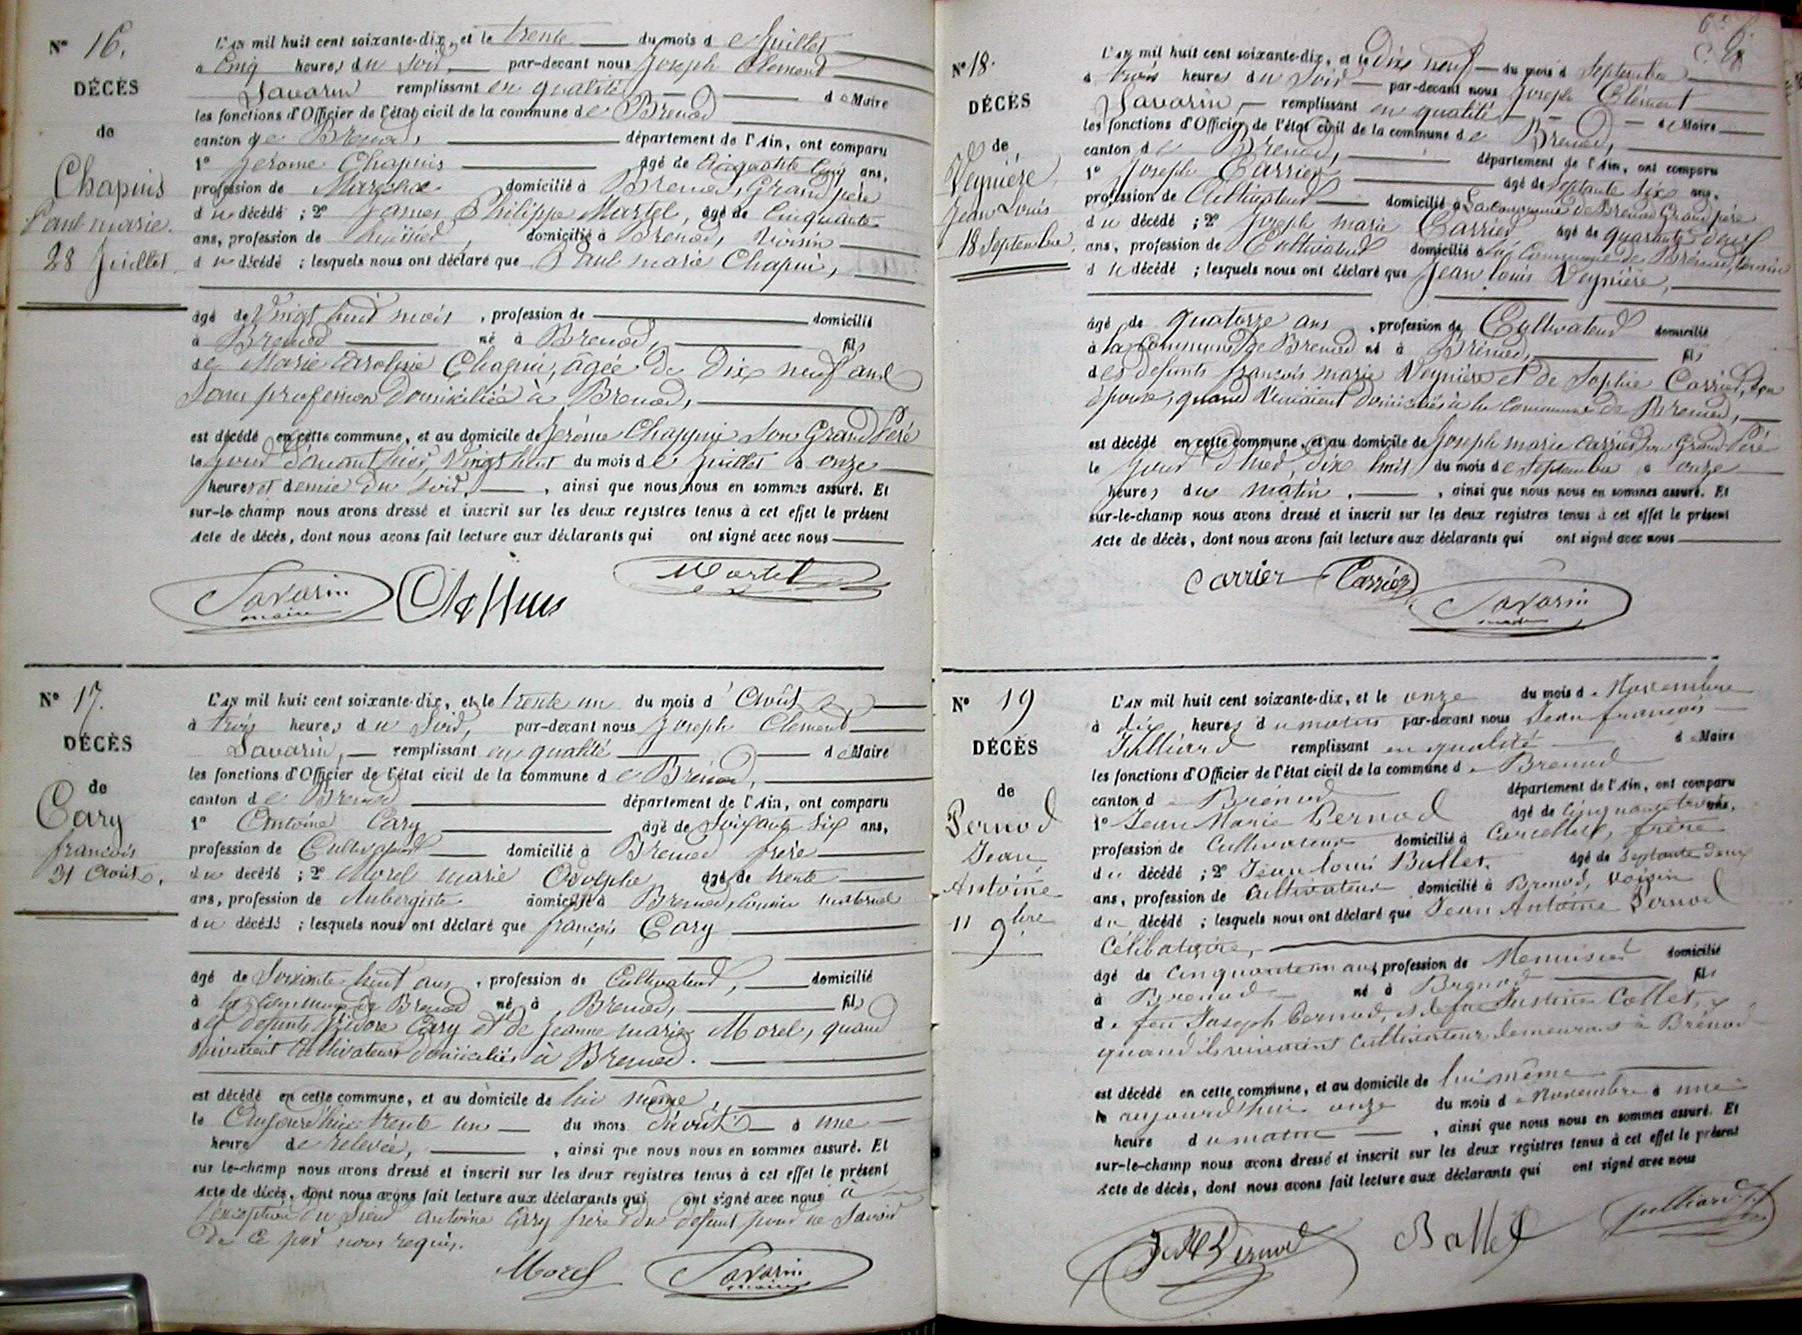 N° 16.
DÉCÈS
de
Chapuis
Paul marie.
28 Juillet
L'AN mil huit cent soixante-dix, et le trente du mois de Juillet
à cinq heures du soir, par-devant nous Joseph Clément
Savarin remplissant en qualité de Maire
les fonctions d'Officier de l'état civil de la commune de Brenod
canton de Brenod, département de l'Ain, ont comparu
1° Jerome Chapuis âgé de Cinquante cinq ans,
profession de domicilié à Brenod, Grand père
du décédé ; 2° James Philippe Martel, âgé de Cinquante
ans, profession de domicilié à Brenod, voisin
du décédé ; lesquels nous ont déclaré que Paul marie Chapui,
âgé de Vingt huit mois , profession de domicilié
à Brenod né à Brenod, fils
de Marie Caroline Chapui, agée de Dix neuf ans
Sans profession Domiciliée à Brenod,
est décédé en cette commune, et au domicile de Jerôme Chappui son Grand Père
le jour d'avant hier, vingt huit du mois de Juillet à onze
heures et demie du soir, , ainsi que nous nous en sommes assuré. Et
sur-le champ nous avons dressé et inscrit sur les deux registres tenus à cet effet le présent
Acte de décès, dont nous avons fait lecture aux déclarants qui ont signé avec nous
Savarin
maire
Martel
N° 17.
DÉCÈS
de
Cary
françois
31 Août.
L'AN mil huit cent soixante-dix, et le trente un du mois d'Août
à trois heures du Soir, par-devant nous Joseph Clement
Savarin, remplissant en qualité de Maire
les fonctions d'Officier de l'état civil de la commune de Brénod,
canton de Brenod département de l'Ain, ont comparu
1° Antoine Cary âgé de Soixante six ans,
profession de Cultivateur domicilié à Brenod frère
du décédé ; 2° Morel marie Adolphe âgé de trente
ans, profession de Aubergiste domicilié à Brenod, Cousin maternel
du décédé ; lesquels nous ont déclaré que françois Cary
âgé de Soixante huit ans , profession de Cultivateur, domicilié
à la commune de Brenod né à Brenod, fils
de defunts Isidore Cary et de Jeanne marie Morel, quand
vivaient Cultivateurs domiciliés à Brenod.
est décédé en cette commune, et au domicile de lui même,
le Aujourd'hui trente un du mois d'août à une
heure de relevée, , ainsi que nous nous en sommes assuré. Et
sur le-champ nous avons dressé et inscrit sur les deux registres tenus à cet effet le présent
Acte de décès, dont nous avons fait lecture aux déclarants qui ont signé avec nous à
l'exception du Sieur Antoine Cary frère du defunt pour ne Savoir
De ce par nous requis.
Morel
Savarin
maire
N° 18.
DÉCÈS
de
Veynière
Jean Louis
18 Septembre
L'AN mil huit cent soixante-dix, et le Dix neuf du mois d Septembre
à trois heures du Soir par-devant nous Joseph Clément
Savarin, remplissant en qualité de Maire
les fonctions d'Officier de l'état civil de la commune de Brenod,
canton de Brenod, département de l'Ain, ont comparu
1° Joseph Carrier âgé de Septante six ans,
profession de Cultivateur domicilié à La commune de Brenod Grand père
du décédé ; 2° Joseph marie Carrier âgé de quarante deux
ans, profession de Cultivateur domicilié à la Commune de Brénod,
du décédé ; lesquels nous ont déclaré que Jean louis Veynière,
âgé de quatorze ans , profession de Cultivateur domicilié
à la Commune de Brenod né à Brénod, fils
des defunts françois marie Veynière et de Sophie Carrier, Son
épouse, quand Vivaient domiciliés à la Commune de Brenod,
est décédé en cette commune, et au domicile de Joseph marie Carrier son Grand Père
le jour d'hier dix huit du mois de Septembre à onze
heures du matin, , ainsi que nous nous en sommes assuré. Et
sur-le-champ nous avons dressé et inscrit sur les deux registres tenus à cet effet le présent
Acte de décès, dont nous avons fait lecture aux déclarants qui ont signé avec nous
Carrier Carrier
Savarin
N° 19
DÉCÈS
de
Pernod
Jean
Antoine
11 9bre
L'AN mil huit cent soixante-dix, et le onze du mois de Novembre
à dix heures du matin par-devant nous Jean françois
Julliard remplissant en qualité d Maire
les fonctions d'Officier de l'état civil de la commune de Brenod
canton de Brénod département de l'Ain, ont comparu
1° Jean Marie Pernod âgé de cinquante trois ans,
profession de Cultivateur domicilié à Corcelles, frère
du décédé ; 2° Jean louis Ballet. âgé de septante deux
ans, profession de Cultivateur domicilié à Brenod, voisin
du décédé ; lesquels nous ont déclaré que Jean Antoine Pernod
Célibataire,
âgé de cinquante un ans profession de Menuisier domicilié
à Brenod né à Brenod fils
de feu Joseph Pernod, et de feu Justine Collet,
quand ils vivaient Cultivateur demeurant à Brénod
est décédé en cette commune, et au domicile de lui même
le aujourd'hui onze du mois de Novembre à une
heure du matin , ainsi que nous nous en sommes assuré. Et
sur-le-champ nous avons dressé et inscrit sur les deux registres tenus à cet effet le présent
Acte de décès, dont nous avons fait lecture aux déclarants qui ont signé avec nous
J M Pernod
Ballet
Julliard